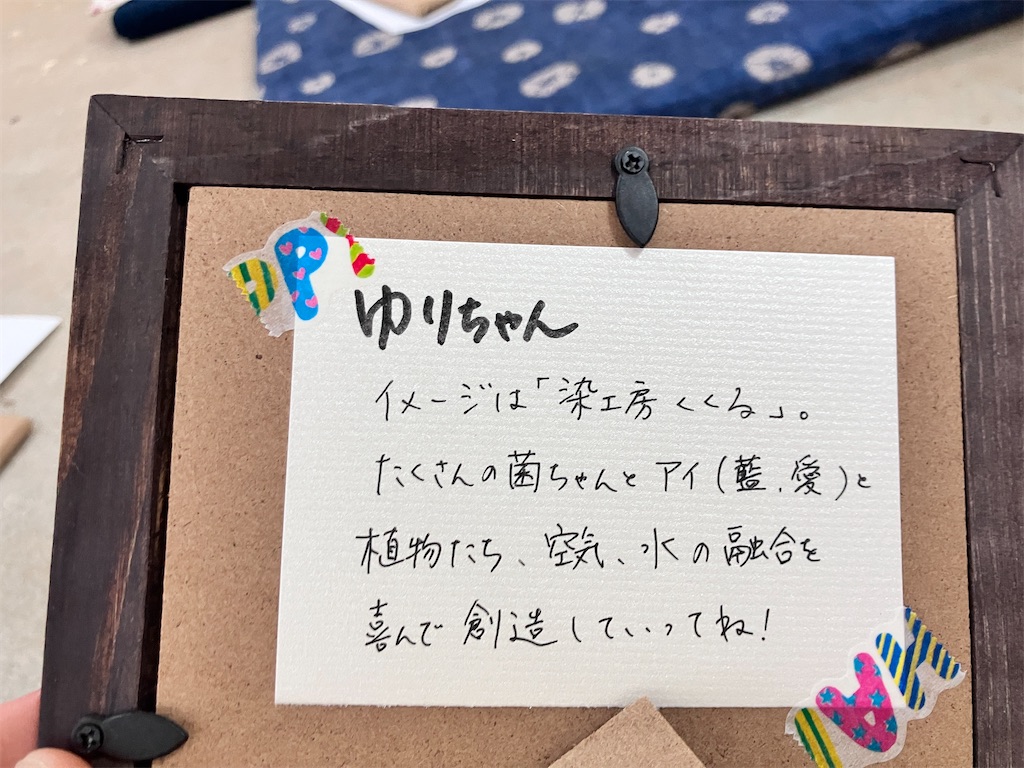 ゆりちゃん
イメージは「染工房くくる」。
たくさんの菌ちゃんとアイ(藍、愛)と
植物たち、空気、水の融合を
喜んで創造していってね!